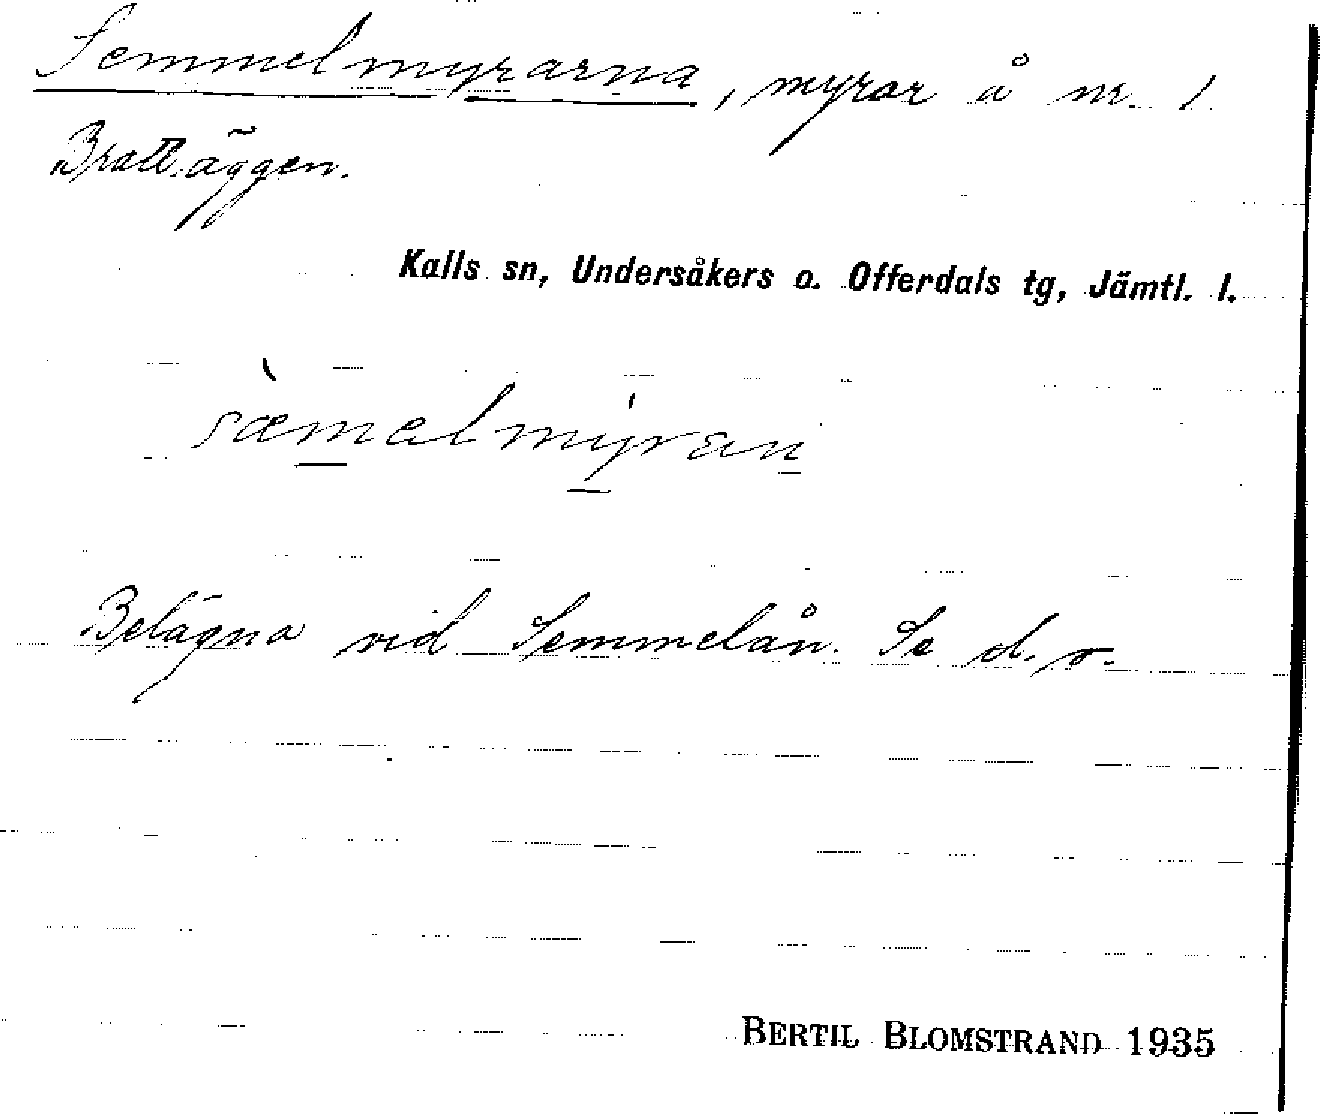 Semmelmyrarna, myrar å nr. 1
Brattäggen.
Kalls sn, Undersåkers o. Offerdals tg, Jämtl. l.
sæ̀mєlmy̍ran
Belägna vid Semmelån. Se d. o.
BERTIL BLOMSTRAND 1935